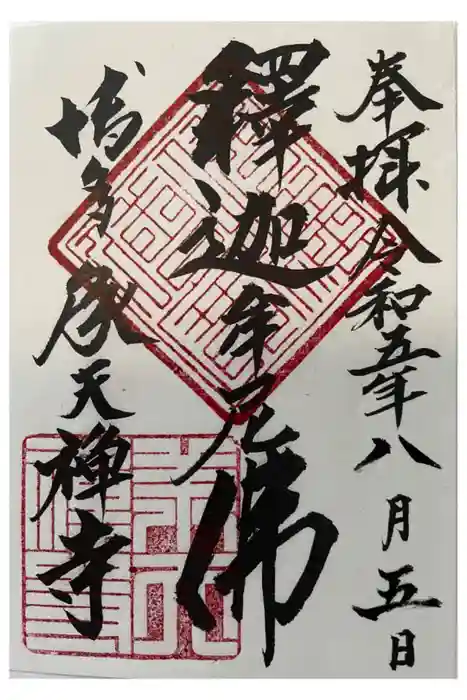 奉拝 令和五年八月五日
釋迦牟尼佛
博多 承天禅寺